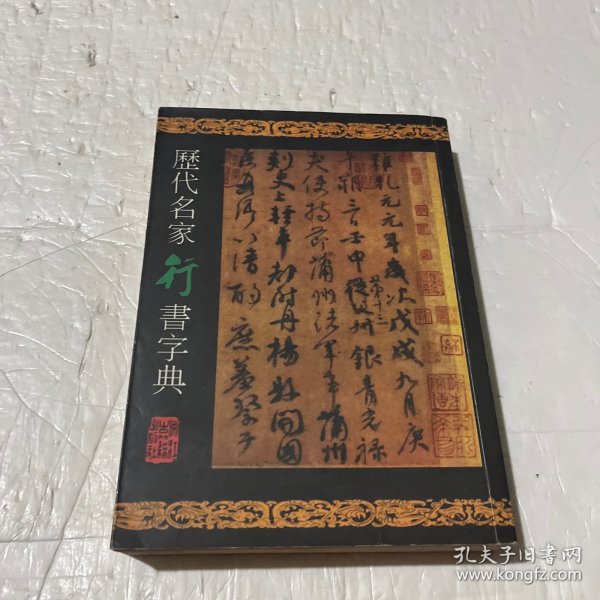 歷代名家行書字典
維乾元元年歲次戊戌九月庚
午朔三日壬申第十三從父叔銀青光祿
夫使持節蒲州諸軍事蒲州
刺史上輕車都尉丹楊縣開國
侯真卿以清酌庶羞祭于
孔夫子旧书网
www.kongfz.com